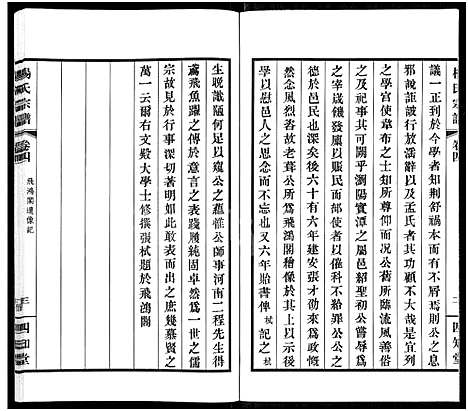 楊氏宗譜 卷四
二 四知堂
議一正到于今學者知荆舒禍本而有不屑焉則公之息
邪說詎詖行放淫辭以及孟氏者其功顧不大哉是宜列
之學宫使韋布之士知所尊仰而況公舊所臨流風善俗
之及祀事其可闕乎瀏陽實潭之屬邑紹聖初公嘗辱爲
之宰歲饑發廩以賑民而部使者以催科不給罪公公之
德於邑民也深矣後六十有六年建安張才邵來爲政慨
然念風烈咨故老葺公所爲飛鴻閣繪像於其上以示後
學以慰邑人之思去而不忘也又六年貽書俾栻記之栻
生晚識陋何足以窺公之蘊惟公師事河南二程先生得
鳶飛魚躍之傳於意言之表踐履純固卓然爲一世之儒
宗故見於行事深切著明如此敢表而出之庶幾慕賢之
萬一云爾右文殿大學士修撰張栻題於飛鴻閣
楊氏宗譜 卷四 飛鴻閣遺像記
三 四知堂